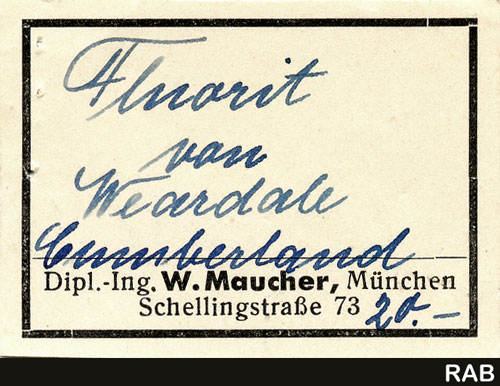 Fluorit
von
Weardale
Cumberland
Dipl.-Ing. W. Maucher, München
Schellingstraße 73 20.–
RAB